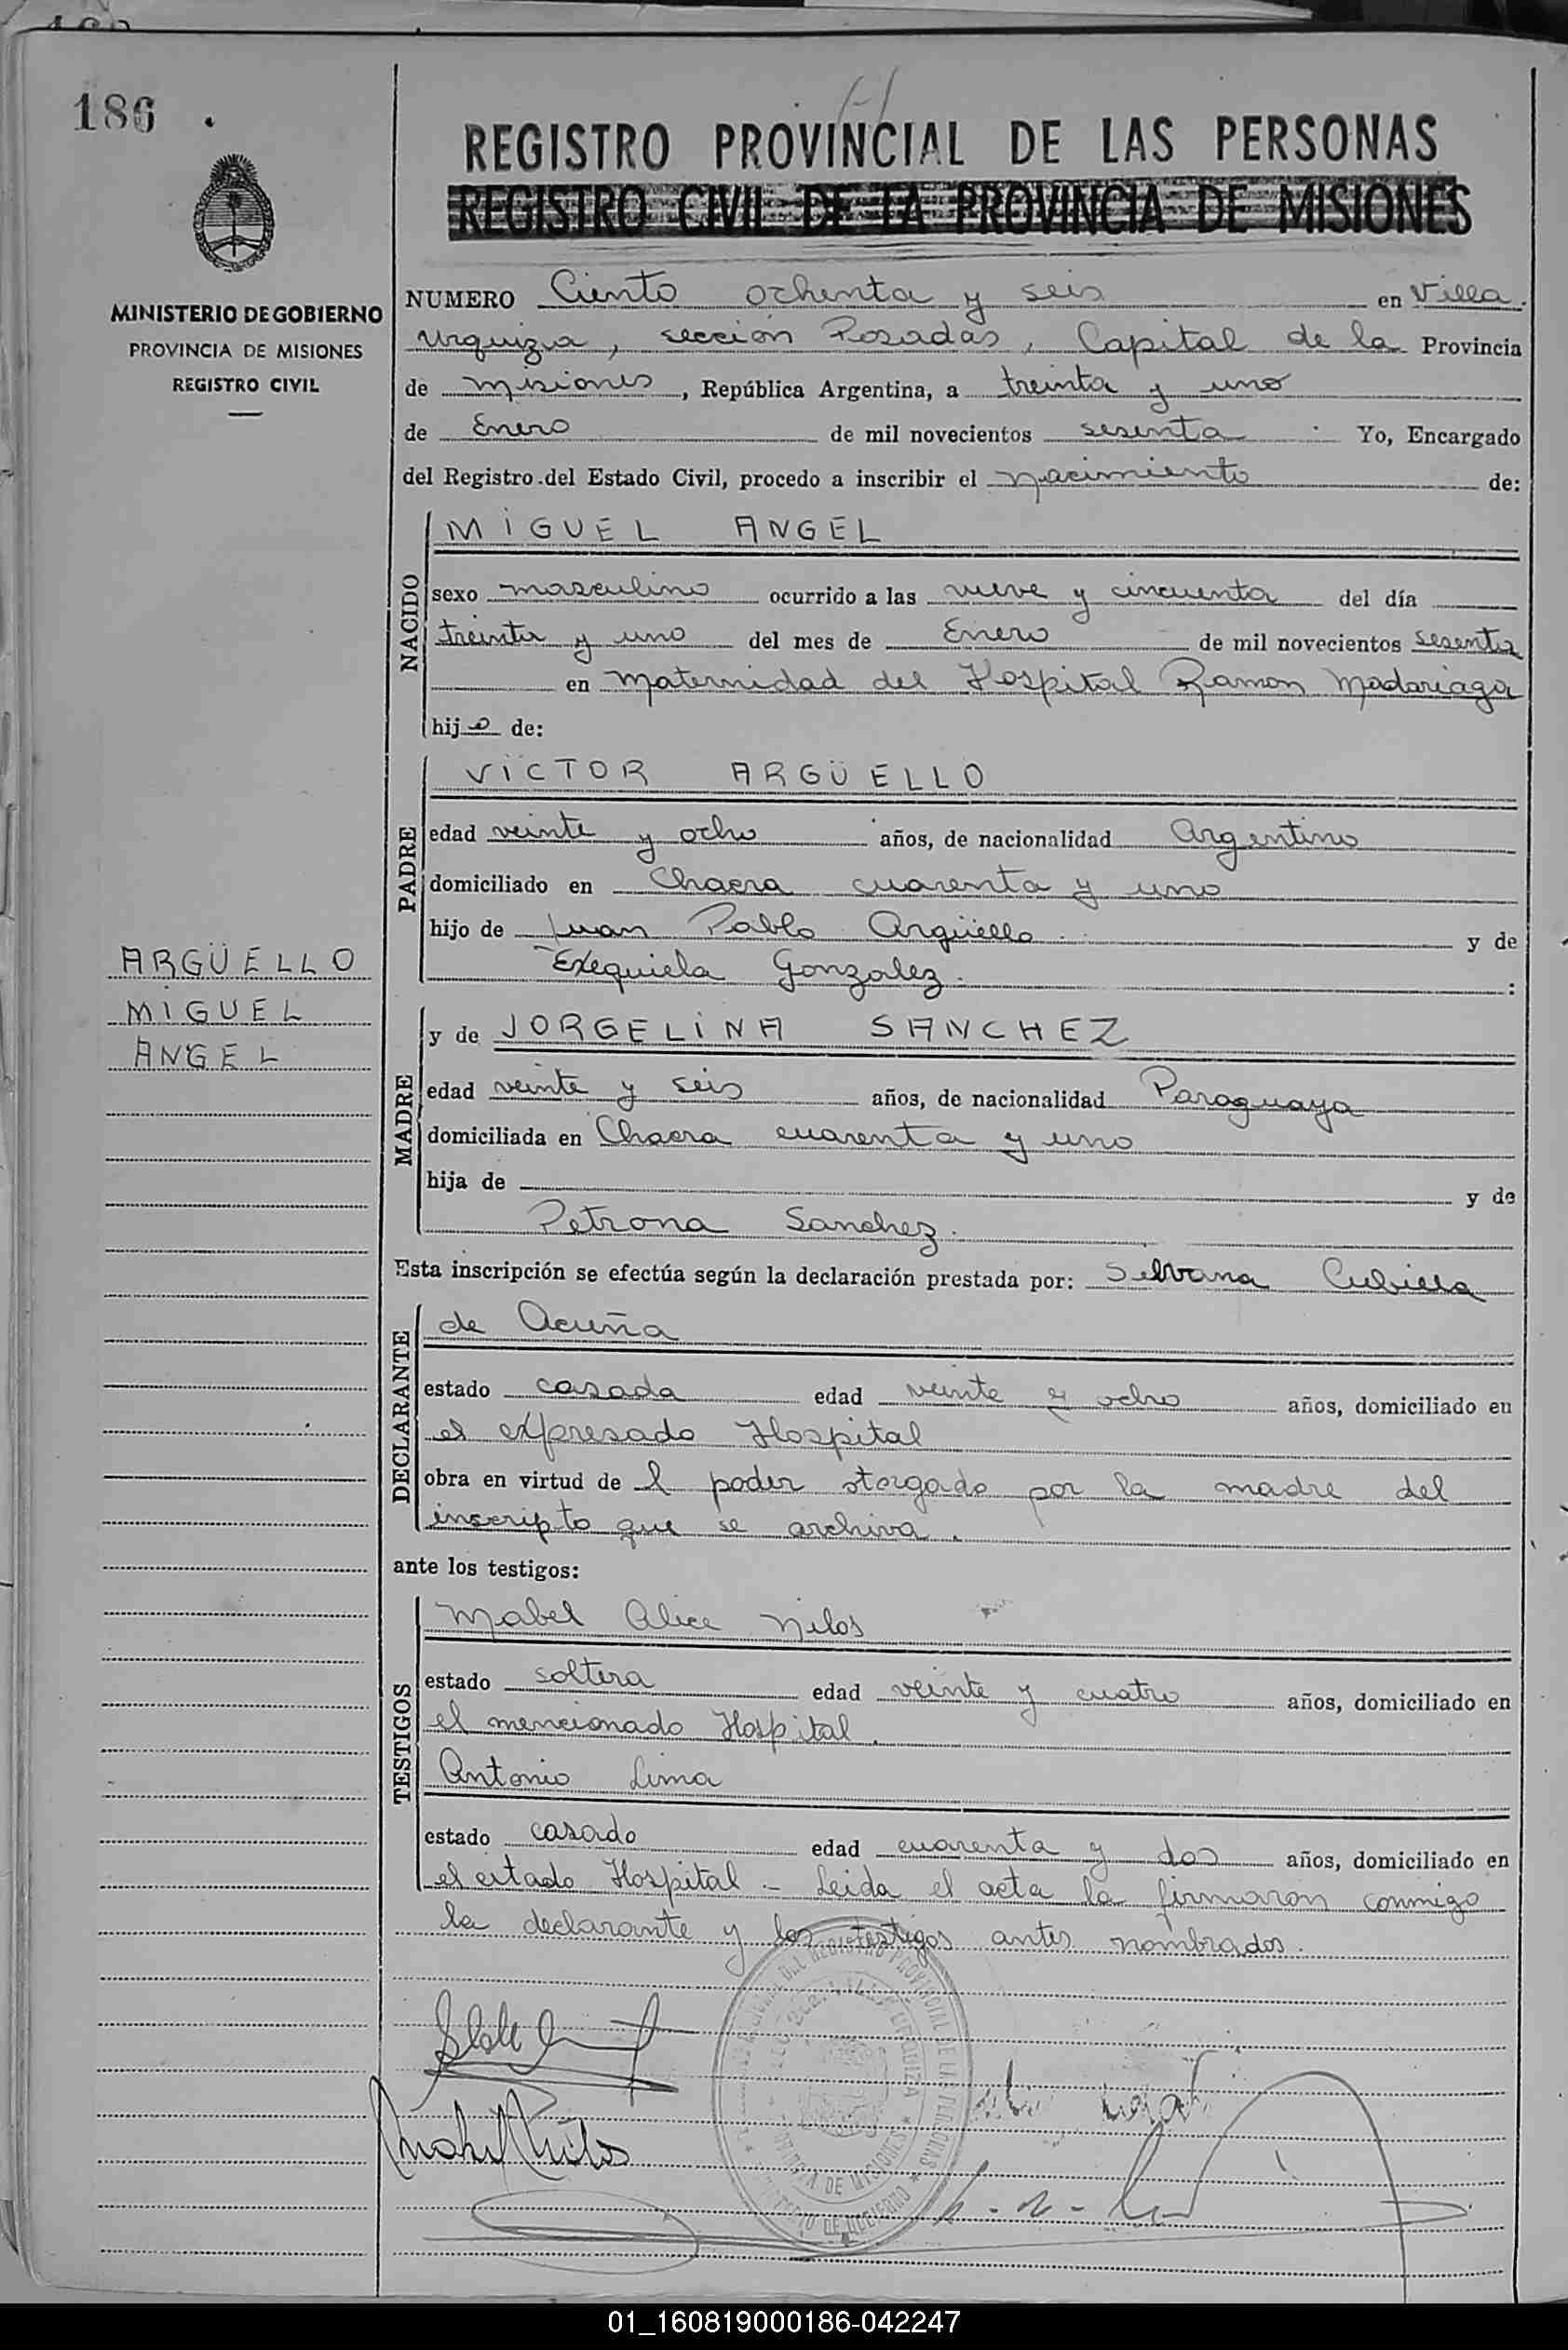 186
REGISTRO PROVINCIAL DE LAS PERSONAS
REGISTRO CIVIL DE LA PROVINCIA DE MISIONES
MINISTERIO DE GOBIERNO
PROVINCIA DE MISIONES
REGISTRO CIVIL
NUMERO Ciento ochenta y seis en Villa
Urquiza, sección Posadas, Capital de la Provincia
de Misiones, República Argentina, a treinta y uno
de Enero de mil novecientos sesenta Yo, Encargado
del Registro del Estado Civil, procedo a inscribir el nacimiento de:
NACIDO
MIGUEL ANGEL
sexo masculino ocurrido a las nueve y cincuenta del día
treinta y uno del mes de Enero de mil novecientos sesenta
en Maternidad del Hospital Ramon Madariaga
hijo de:
PADRE
VICTOR ARGÜELLO
edad veinte y ocho años, de nacionalidad Argentino
domiciliado en Chacra cuarenta y uno
hijo de Juan Pablo Argüello y de
Exequiela Gonzalez.
ARGÜELLO
MIGUEL
ANGEL
MADRE
y de JORGELINA SANCHEZ
edad veinte y seis años, de nacionalidad Paraguaya
domiciliada en Chacra cuarenta y uno
hija de y de
Petrona Sanchez.
Esta inscripción se efectúa según la declaración prestada por: Silvana Cubilla
DECLARANTE
de Acuña
estado casada edad veinte y ocho años, domiciliado en
el expresado Hospital
obra en virtud de l poder otorgado por la madre del
inscripto que se archiva.
ante los testigos:
TESTIGOS
Mabel Alice Nilos
estado soltera edad veinte y cuatro años, domiciliado en
el mencionado Hospital.
Antonio Lima
estado casado edad cuarenta y dos años, domiciliado en
el citado Hospital - Leida el acta la firmaron conmigo
la declarante y los testigos antes nombrados.
01_160819000186-042247